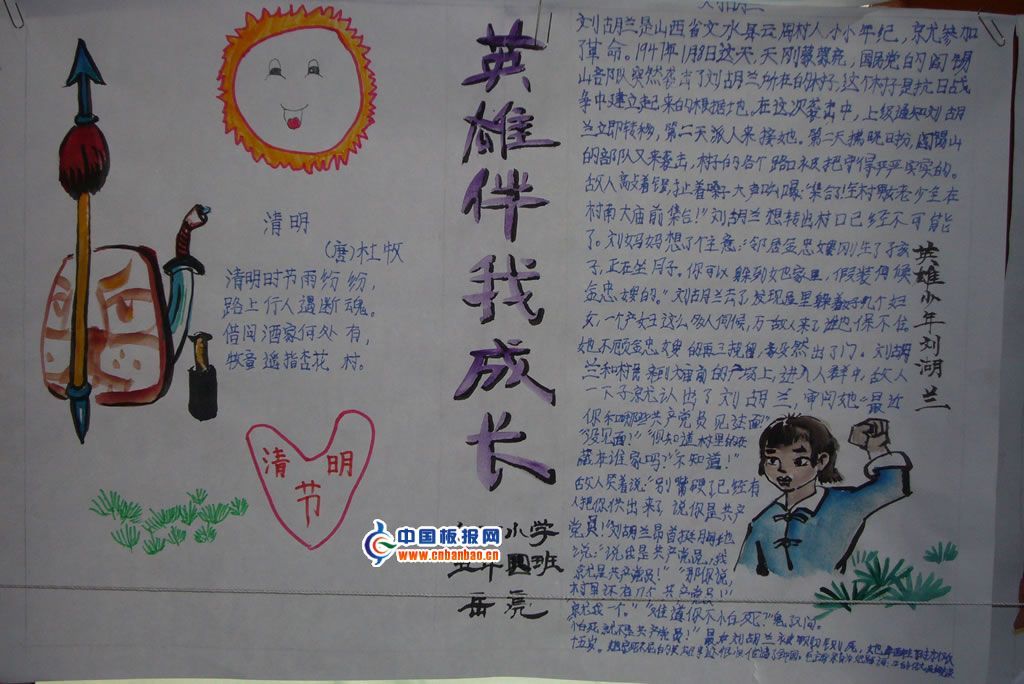 英雄伴我成长
清明
(唐)杜牧
清明时节雨纷纷,
路上行人遇断魂。
借问酒家何处有,
牧童遥指杏花 村。
清 明
节
小学
五年四班
岳亮
中国板报网
www.cnbanbao.cn
英雄少年刘湖兰
刘胡兰
刘胡兰是山西省文水县云周村人,小小年纪,就参加
了革命。1947年1月8日这天,天刚蒙蒙亮,国民党的阎锡
山部队突然袭击了刘胡兰所在的村子,这个村子是抗日战
争中建立起来的根据地。在这次袭击中,上级通知刘胡
兰立即转移,第二天派人来接她。第二天拂晓时分,阎锡山
的部队又来袭击,村子的各个路口被把守得严严实实的。
敌人敲着锣,扯着嗓子大声叫嚷:“集合了!全村男女老少全在
村南大庙前集合!”刘胡兰想转出村口已经不可能
了。刘妈妈想了个主意:“邻居金忠嫂刚生了孩
子,正在坐月子。你可以躲到她家里,假装伺候
金忠嫂的。”刘胡兰去了发现屋里躲着好几个妇
女,一个产妇这么多人伺候,万一敌人来了谁也保不住
她不顾金忠嫂的再三挽留,毅然出了门。刘胡
兰和村民来到大庙前的广场上,进入人群中,敌人
一下子就认出了刘胡兰,审问她:“最近
你和哪些共产党员见过面?”
“没见面!”“你知道村里的
在谁家吗?”“不知道!”
敌人笑着说:“别嘴硬了已经有
人把你供出来了,说你是共产
党员!”刘胡兰昂首挺胸地
说:“说我是共产党员,我
就是共产党员!”“那你说,
村里还有几个共产党员?”
就我一个。”“难道你不怕死?”
怕死就不是共产党员!”
十五岁。